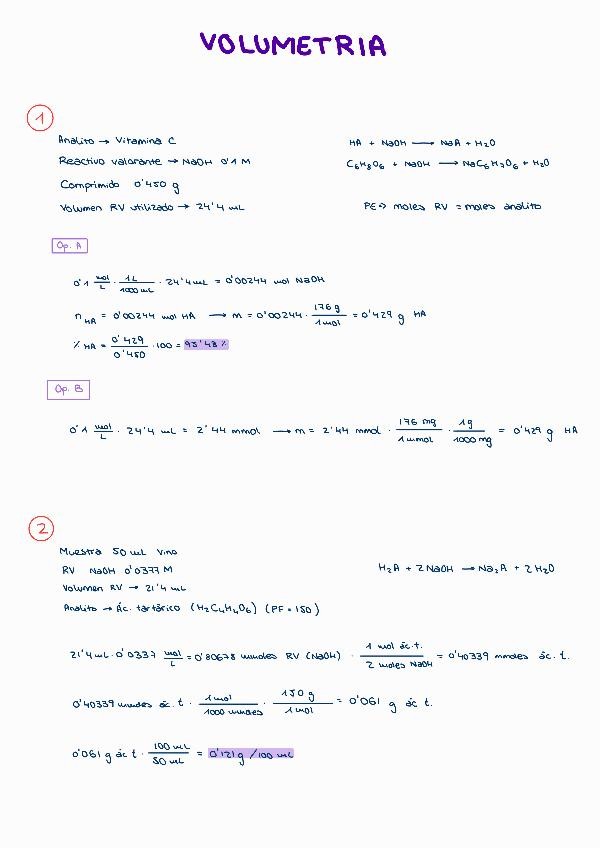 VOLUMETRIA
1
Analito → Vitamina C
HA + NaOH → NaA + H₂O
Reactivo valorante → NaOH 0'1 M
C₆H₈O₆ + NaOH → NaC₆H₇O₆ + H₂O
Comprimido 0'450 g
Volumen RV utilizado → 24'4 mL
PE → moles RV = moles analito
Op. A
0'1 mol/L · 1L/1000 mL · 24'4 mL = 0'00244 mol NaOH
n HA = 0'00244 mol HA → m = 0'00244 · 176 g/1 mol = 0'429 g HA
% HA = 0'429/0'450 · 100 = 95'43 %
Op. B
0'1 mol/L · 24'4 mL = 2'44 mmol → m = 2'44 mmol · 176 mg/1 mmol · 1g/1000 mg = 0'429 g HA
2
Muestra 50 mL vino
RV NaOH 0'0377 M
H₂A + 2 NaOH → Na₂A + 2 H₂O
Volumen RV → 21'4 mL
Analito → Ác. tartárico (H₂C₄H₄O₆) (PF = 150)
21'4 mL · 0'0377 mol/L = 0'80678 mmoles RV (NaOH) · 1 mol ác. t./2 moles NaOH = 0'40339 mmoles ác. t.
0'40339 mmoles ác. t · 1 mol/1000 mmoles · 150 g/1 mol = 0'061 g ác t.
0'061 g ác t · 100 mL/50 mL = 0'121 g / 100 mL